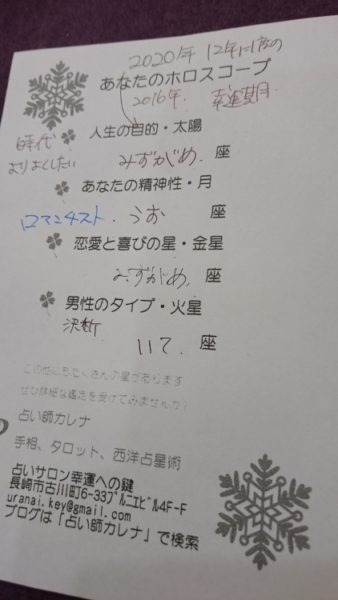 2020年 12年に1度の
あなたのホロスコープ
2016年. 幸運期
時代
よりよくしたい
人生の目的・太陽
みずがめ. 座
あなたの精神性・月
ロマンチスト. うお 座
恋愛と喜びの星・金星
みずがめ. 座
男性のタイプ・火星
決断
いて. 座
この他にもたくさんの星があります
ぜひ詳細な鑑定を受けてみませんか?
占い師カレナ
手相、タロット、西洋占星術
占いサロン幸運への鍵
長崎市古川町6-33ブルニエビル4F-F
uranai.key@gmail.com
ブログは「占い師カレナ」で検索